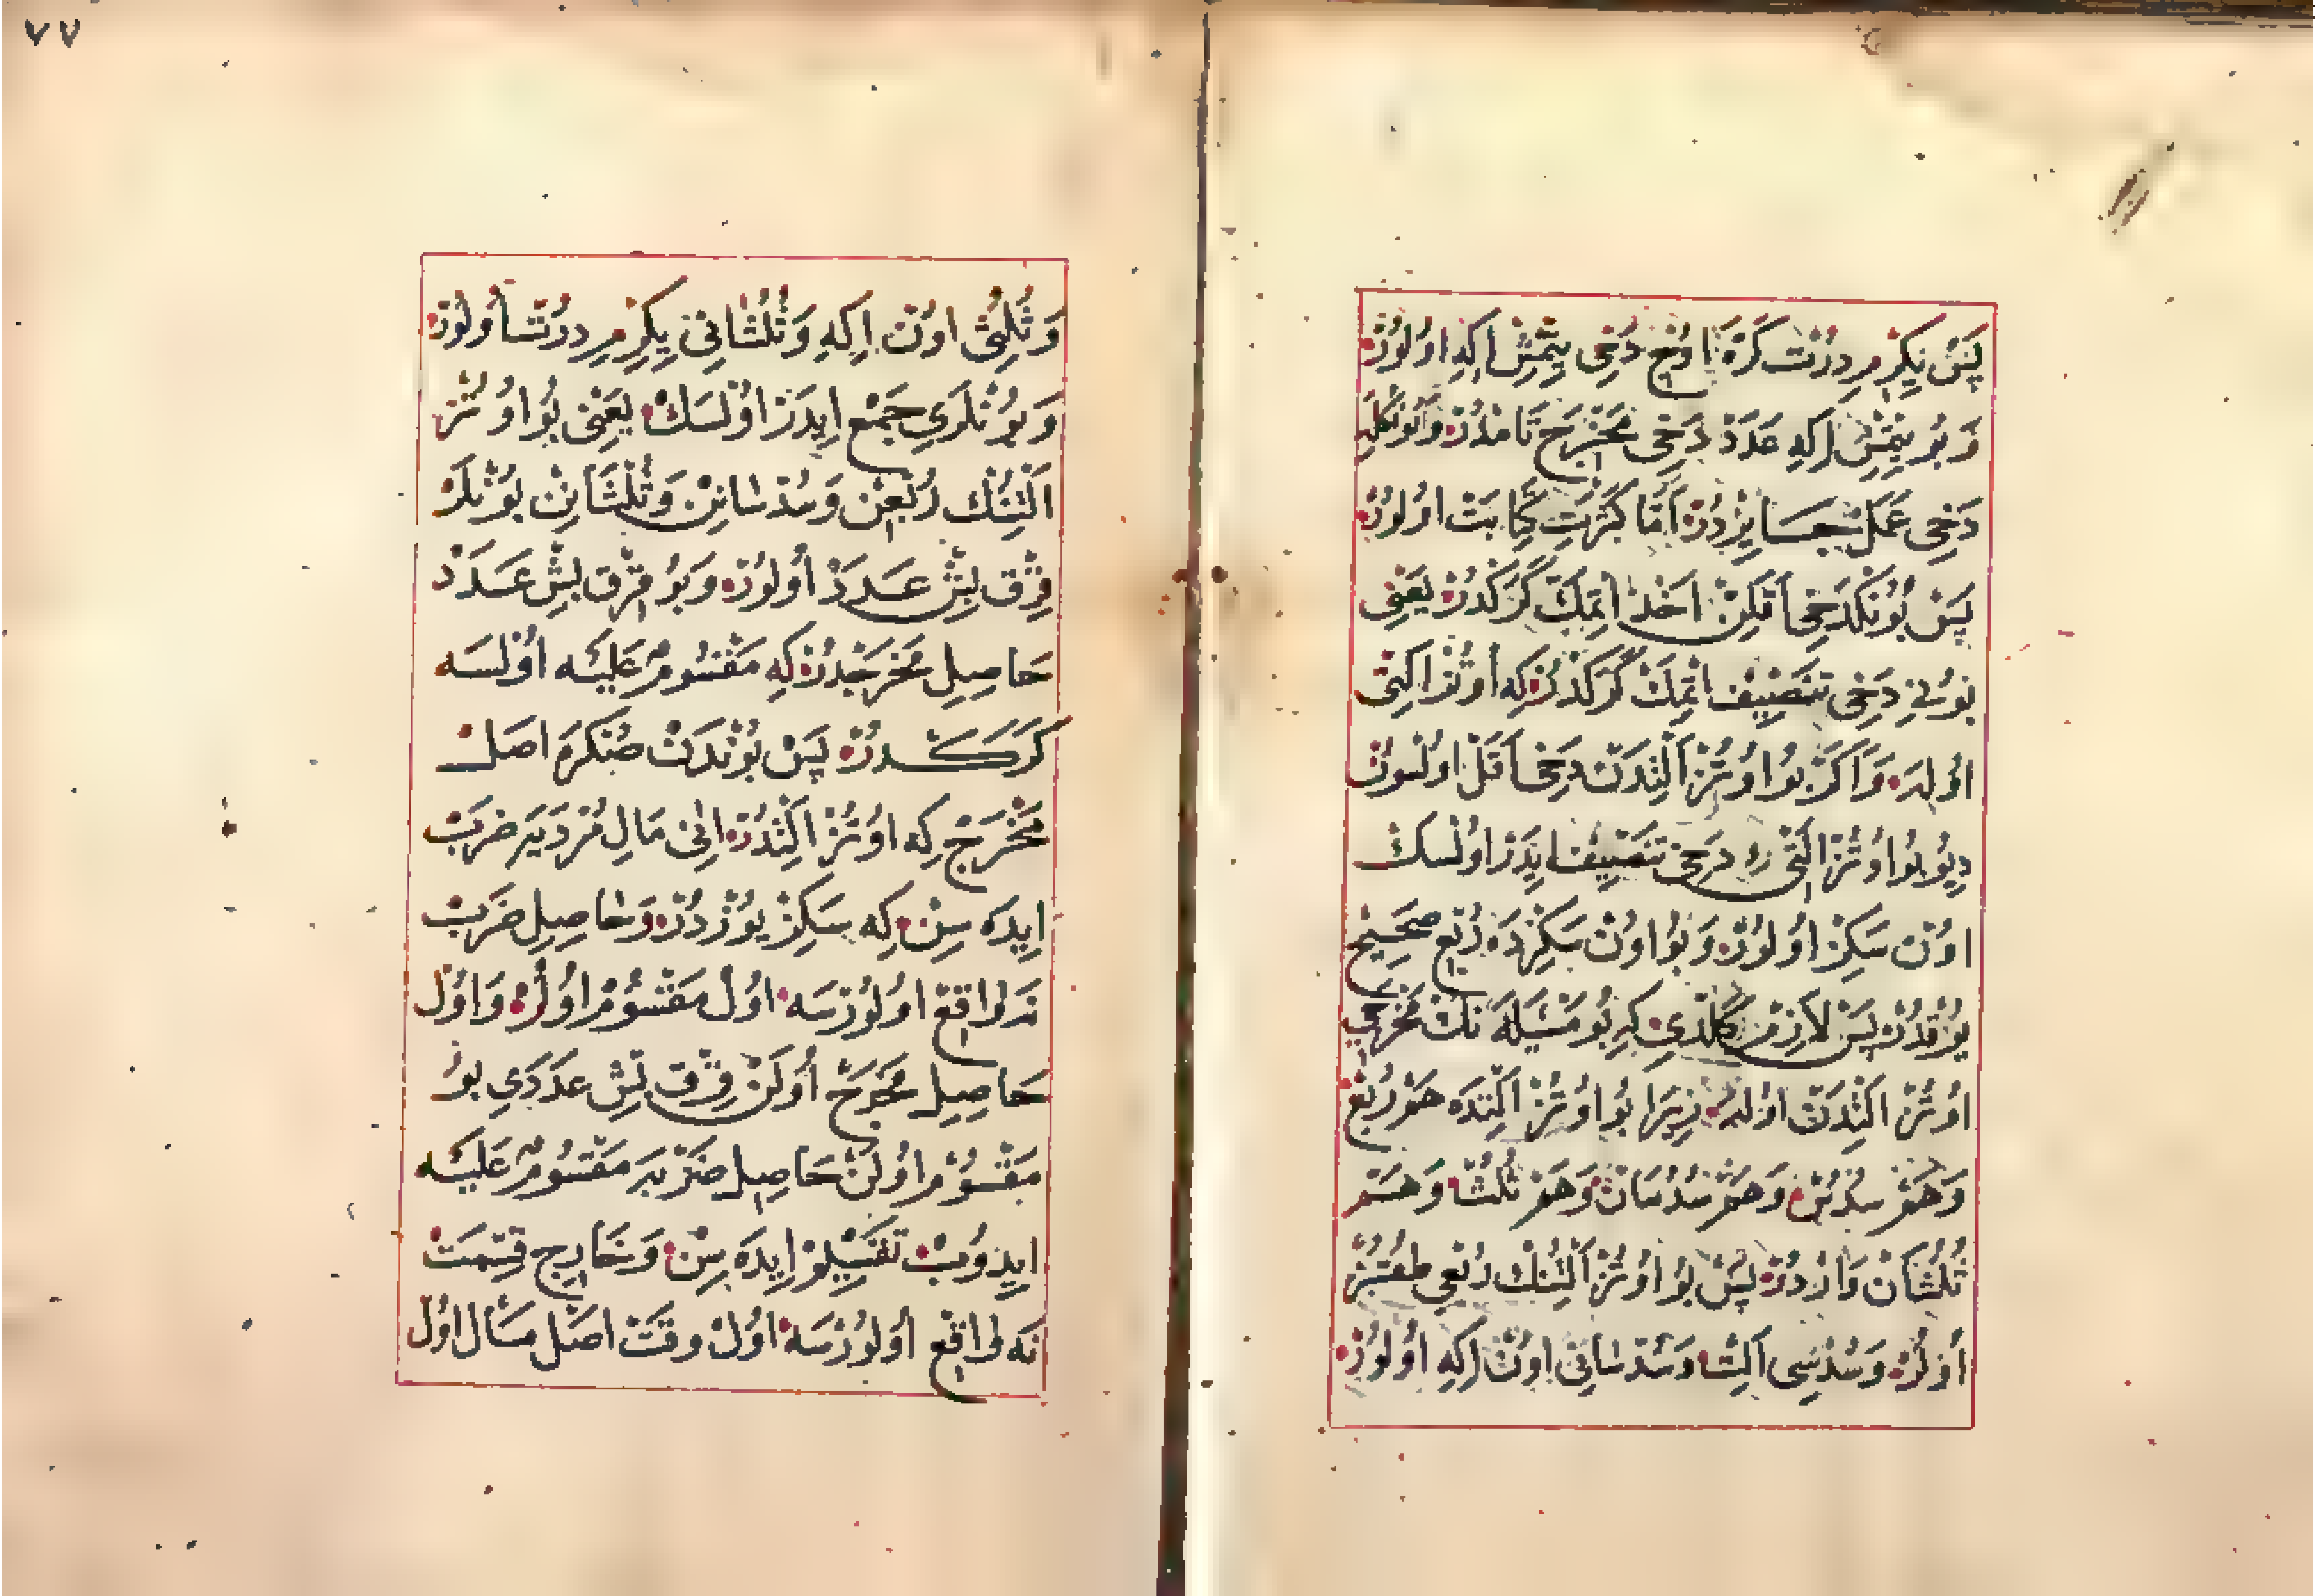 پَسْ يِكِرْمِ دُرْتْ كَرَّه اوُچْ دَخِى يِتْمِشْ اِكِه اوُلوُرْ
وَ بوُ يِتْمِشْ اِكِه عَدَدْ دَخِى مَخْرَجِ تَامْدُرْ
دَخِى عَمَلْ اَمَّا كَثْرَتِ كِتَابَتْ اوُلوُرْ
پَسْ بوُنْكْ دَخِى اَقَلِّنْ اَخْذْ اِتْمَكْ كَرَكْدُرْ يَعْنِى
بوُنِى دَخِى تَنْصِيفْ اِتْمَكْ كَرَكْدُرْ كِه اوُتُزْ اَلْتِى
اوُلَه وَ اَكَرْ بوُ اوُتُزْ اَلْتِدَنْ دَخِى اَقَلْ اوُلْسوُنْ
دِيوُ بوُ اوُتُزْ اَلْتِى دَخِى تَنْصِيفْ اِيدَرْ اوُلْسَكْ
اوُنْ سَكِزْ اوُلوُرْ وَ بوُ اوُنْ سَكِزْدَه رُبْعِ صَحِيحْ
يوُقْدُرْ پَسْ لَازِمْ كَلْدِى كِه بوُ مَسْئَلَه نِكْ مَخْرَجِى
اوُتُزْ اَلْتِدَنْ اوُلَه زِيرَا بوُ اوُتُزْ اَلْتِدَه هَمْ رُبْعْ
وَ هَمْ سُدُسْ وَ هَمْ سُدُسَانْ وَ هَمْ ثُلُثْ وَ هَمْ
ثُلُثَانْ وَارْدُرْ پَسْ بوُ اوُتُزْ اَلْتِنُكْ رُبْعِى طُقُزْ
اوُلُرْ وَ سُدْسِى اَلْتِ وَ سُدْسَانِى اوُنْ اِكِه اوُلوُرْ
وَ ثُلْثِى اوُنْ اِكِه وَ ثُلْثَانِى يِكِرْمِ دُرْتْ اوُلوُرْ
وَ بوُنْلَرِى جَمْعْ اِيدَرْ اوُلْسَكْ يَعْنِى بوُ اوُتُزْ
اَلْتِنُكْ رُبْعِنْ وَ سُدْسَانِنْ وَ ثُلْثَانِنْ بوُنْلَرْ
قِرْقْ بِشْ عَدَدْ اوُلوُرْ وَ بوُ قِرْقْ بِشْ عَدَدْ
حَاصِلِ مَخْرَجْدُرْ كِه مَقْسوُمٌ عَلَيْه اوُلْسَه
كَرَكْدُرْ پَسْ بوُنْدَنْ صُكْرَه اَصْلْ
مَخْرَجْ كِه اوُتُزْ اَلْتِدُرْ اَنِى مَالِ مُزْدَيَه ضَرْبْ
اِيدَه سِنْ كِه سَكِزْ يوُزْدُرْ وَ حَاصِلِ ضَرْبْ
نَه وَاقِعْ اوُلوُرْسَه اوُلْ مَقْسوُمْ اوُلُرْ وَ اوُلْ
حَاصِلِ مَخْرَجْ اوُلَنْ قِرْقْ بِشْ عَدَدِى بوُ
مَقْسوُمْ اوُلَنْ حَاصِلِ ضَرْبَه مَقْسوُمٌ عَلَيْه
اِيدوُبْ تَقْسِيمْ اِيدَه سِنْ وَ خَارِجِ قِسْمَتْ
نَه وَاقِعْ اوُلوُرْسَه اوُلْ وَقْتْ اَصْلْ مَالْ اوُلْ
٧٧